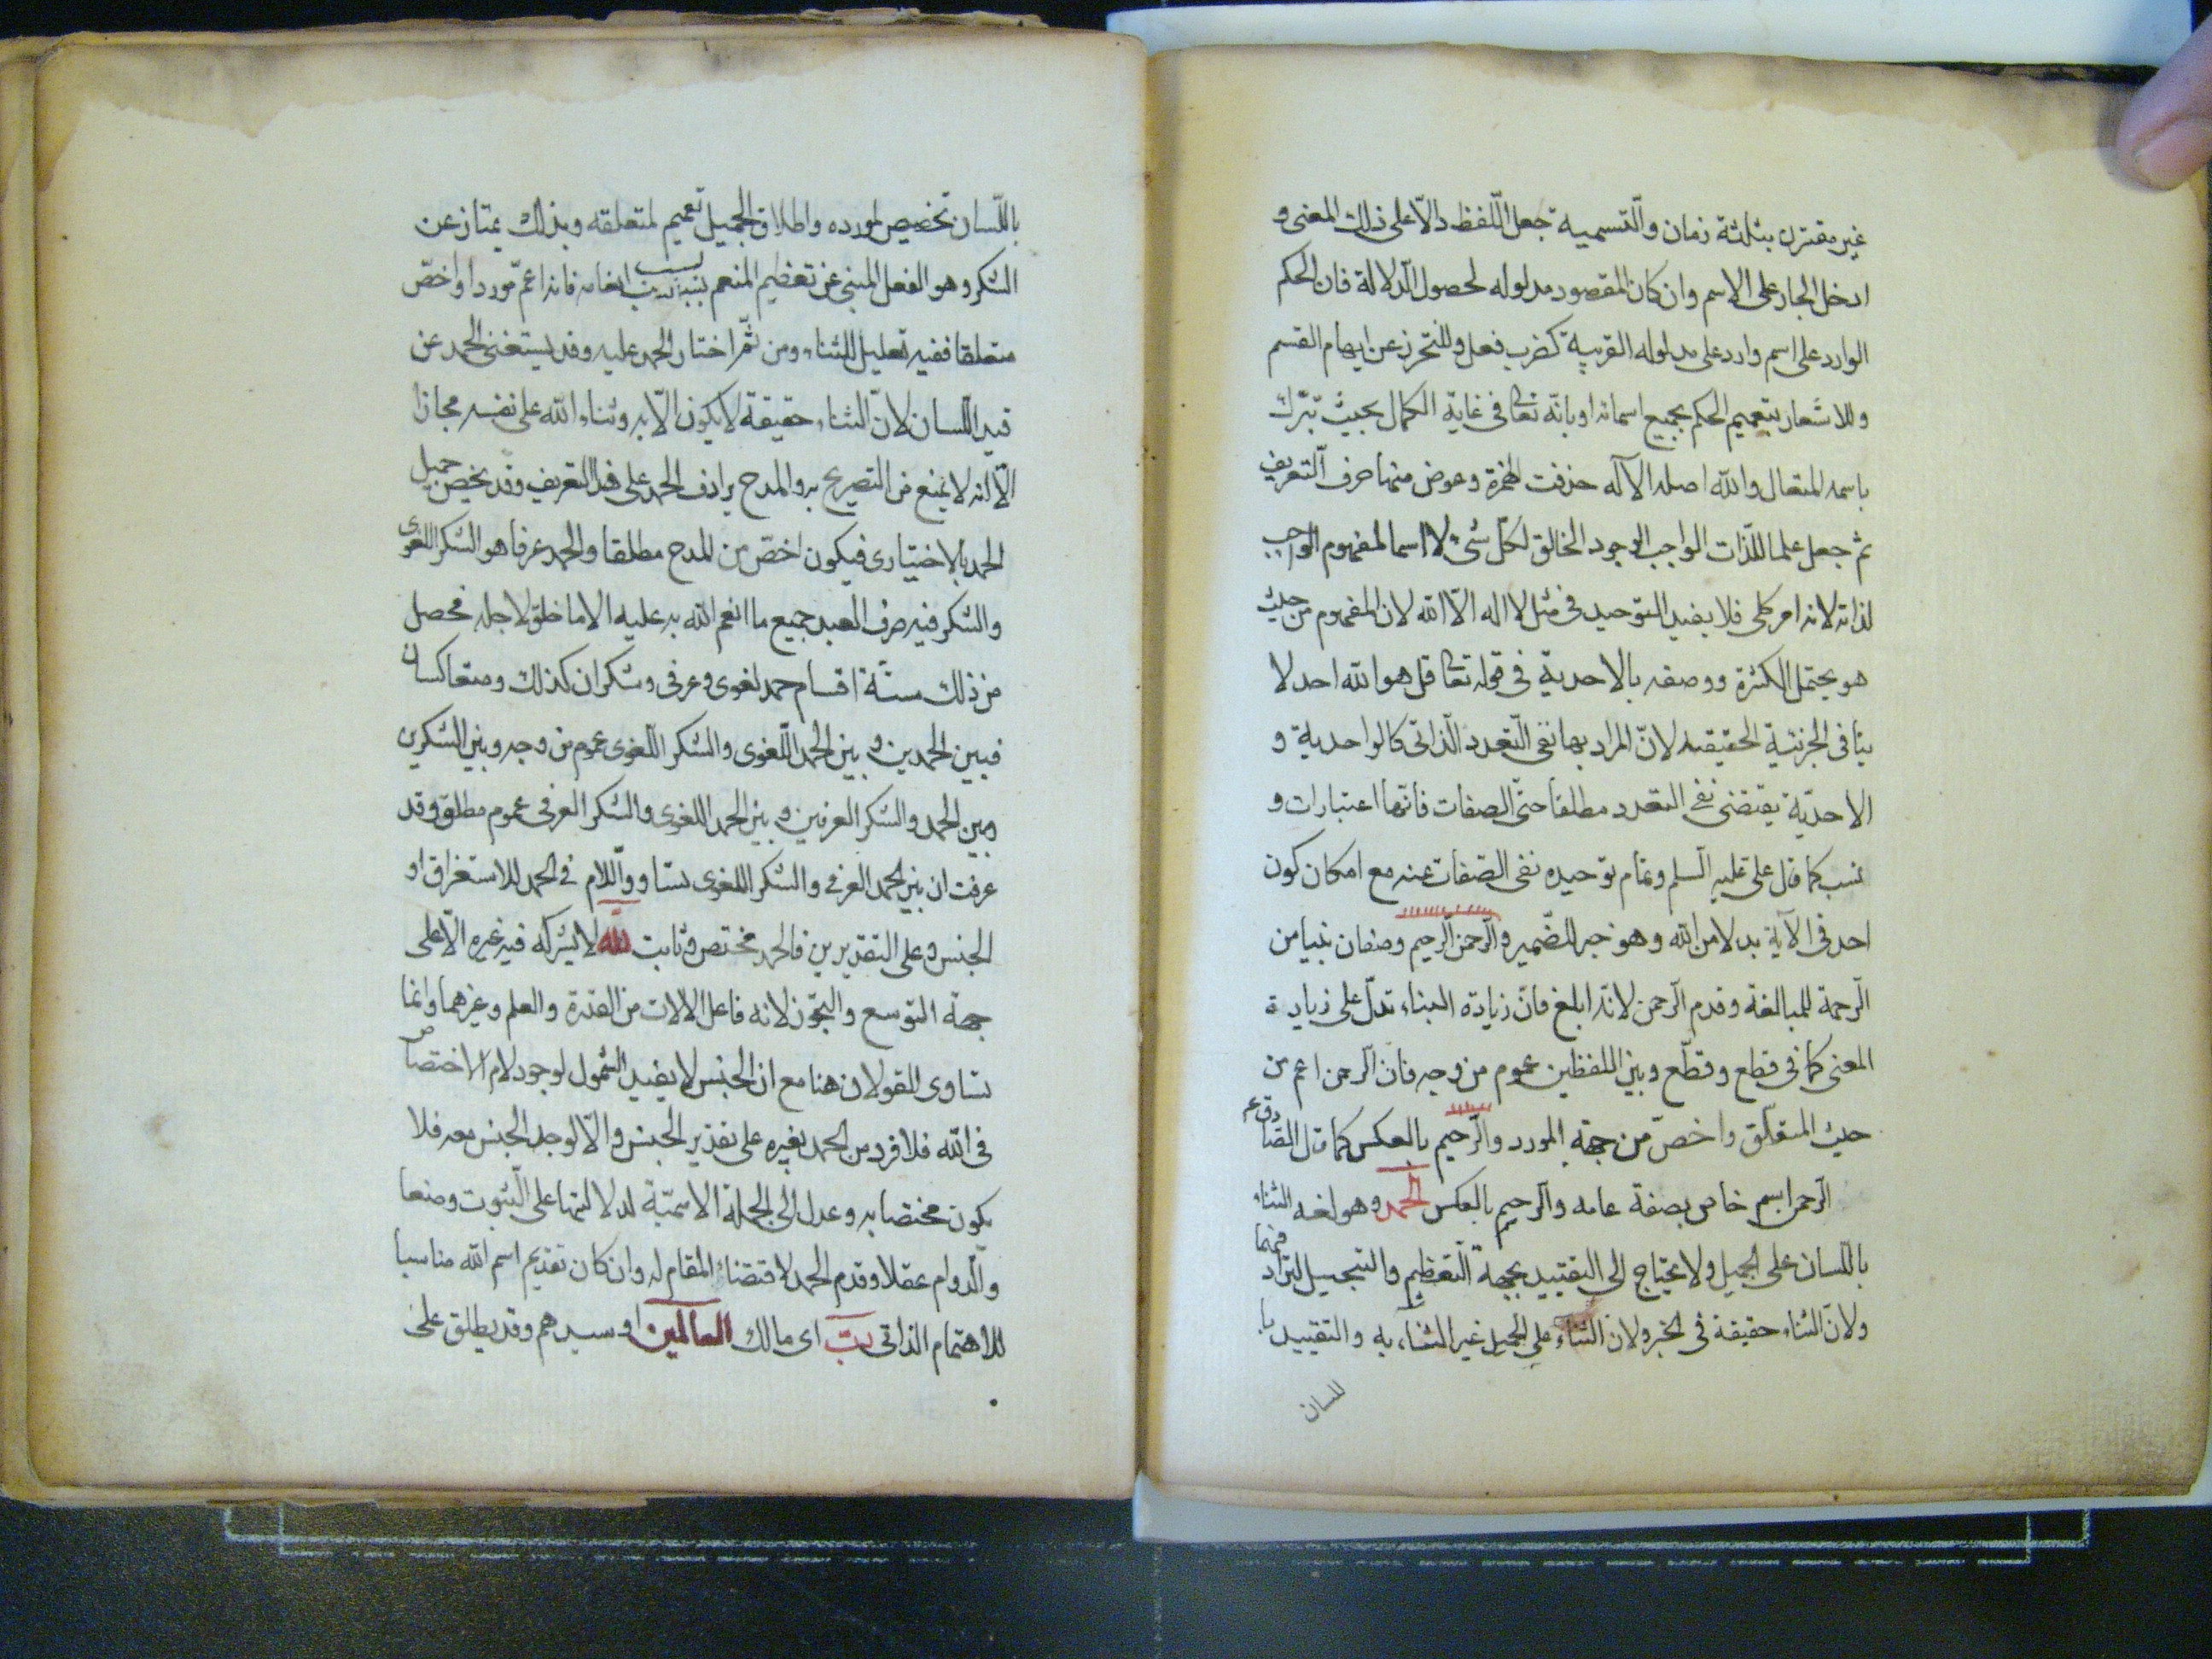 غير مقترن بثلثة زمان والتّسمية جعل اللّفظ دالّا على ذلك المعنى و
ادخل الجار على الاسم وان كان المقصود مدلوله لحصول الدّلالة فان الحكم
الوارد على اسم وارد على مدلوله القريبة كضرب فعل وللتحرز عن ايهام القسم
وللاشعار بتعميم الحكم بجميع اسمائه او بانّه تعالى فى غاية الكمال بحيث تبّرك
باسمه المتعال والله اصله الآله حذفت الهمزة وعوض منها حرف التّعريف
ثم جعل علما للذّات الواجب الوجود الخالق لكلّ شئ لا اسما لمفهوم الواجب
لذاته لانه امر كلى فلا يفيد التوحيد فى مثل لا اله الّا الله لان المفهوم من حيث
هو يحتمل الكثرة ووصفه بالاحدية فى قوله تعالى قل هو الله احد لا
ينافى الجزئية الحقيقيه لانّ المراد بها نفى التّعدد الذّاتى كالواحدية و
الاحديّة يقتضى نفى التعدد مطلقا حتى الصفات فانّها اعتبارات و
نسب كما قال على عليه السّلم وتمام توحيده نفى الصّفات عنه مع امكان كون
احد فى الآية بدلا من الله وهو خبر للضّمير والرّحمن الرّحيم وصفان بنيا من
الرّحمة للمبالغة وقدم الرّحمن لانّه ابلغ فانّ زيادة البناء تدلّ على زيادة
المعنى كما فى قطع وقطّع وبين اللفظين عموم من وجه فان الرّحمن اعم من
حيث المتعلّق واخصّ من جهة المورد والرّحيم بالعكس كما قال الصّادق ع
الرّحمن اسم خاص بصفة عامه والرّحيم بالعكس الحمد وهو لغه الثناء
باللّسان على الجميل ولا يحتاج الى التقييد بجهة التّعظيم والتبجيل لترادفهما
ولانّ الثناء حقيقة فى الخبر ولان الثناء على الجميل غير الثناء به والتقييد با
للسان
باللّسان تخصيص لمورده واطلاق الجميل تعميم لمتعلقه وبذلك يمتاز عن
الشكر وهو الفعل المنبى عن تعظيم المنعم بسبب انعامه فانه اعمّ موردا واخصّ
متعلقا ففيه تعليل للثناء ومن ثمّ اختار الحمد عليه وقد يستغنى الحمد عن
قيد اللّسان لانّ الثناء حقيقة لا يكون الّا به وثناء الله على نفسه مجازا
الّا انه لا يمنع من التصريح به والمدح يرادف الحمد على هذا التعريف وقد يخص جميل
الحمد بالاختيارى فيكون اخصّ من المدح مطلقا والحمد عرفا هو الشكر اللغوى
والشكر فيه صرف العبد جميع ما انعم الله به عليه الا ما خلق لاجله فحصل
من ذلك ستّة اقسام حمد لغوى وعرفى وشكران كذلك ومتعاكسان
فبين الحمدين و بين الحمد اللّغوى والشكر اللّغوى عموم من وجه وبين الشكرين
وبين الحمد والشكر العرفيين و بين الحمد اللغوى والشكر العرفى عموم مطلق وقد
عرفت ان بين الحمد العرفى والشكر اللغوى تساو واللّام فى الحمد للاستغراق او
الجنس و على التقديرين فالحمد مختص و ثابت لله لا يشركه فيه غيره الّا على
جهة التوسع والتجوّز لانه فاعل الآلات من القدرة والعلم وغيرهما وانما
تساوى القولان هنا مع ان الجنس لا يفيد الشمول لوجود لام الاختصاص
فى الله فلا فرد من الحمد بغيره على تقدير الجنس والّا لوجد الجنس معه فلا
يكون مختصا به وعدل الى الجملة الاسميّة لدلالتها على الثّبوت وضعا
والّدوام عقلا وقدم الحمد لاقتضاء المقام له وان كان تقديم اسم الله مناسبا
للاهتمام الذاتى ربّ اى مالك العالمين او سيدهم وقد يطلق على